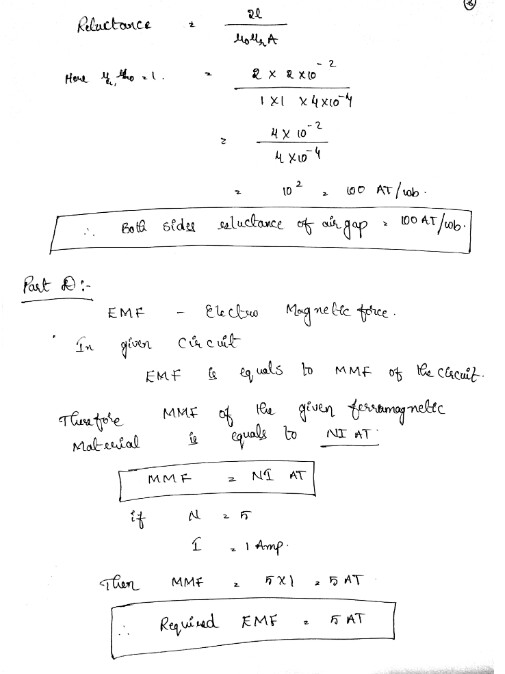 Reluctance = 2l / μ₀μᵣA
Here μᵣ, μ₀ = 1. = 2 × 2 × 10⁻² / 1 × 1 × 4×10⁻⁴
= 4 × 10⁻² / 4 × 10⁻⁴
= 10² = 100 AT/wb.
∴ Both sides reluctance of air gap = 100 AT/wb.
Part D :-
EMF - Electro Magnetic force.
In given circuit
EMF is equals to MMF of the circuit.
Therefore MMF of the given ferramagnetic
Material is equals to NI AT
MMF = NI AT
if N = 5
I = 1 Amp.
Then MMF = 5×1 = 5 AT
∴ Required EMF = 5 AT